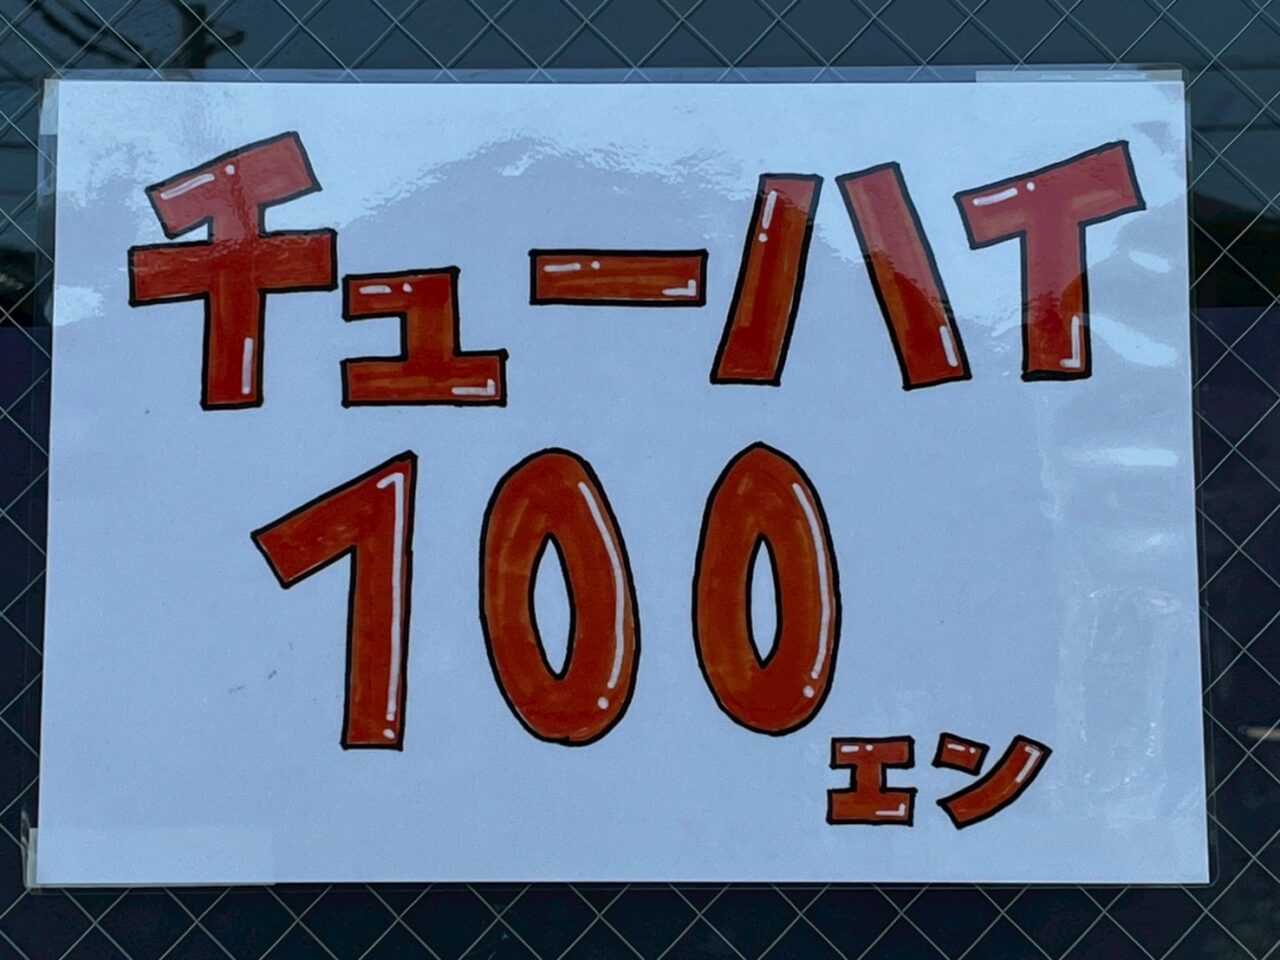 チューハイ
100
エン